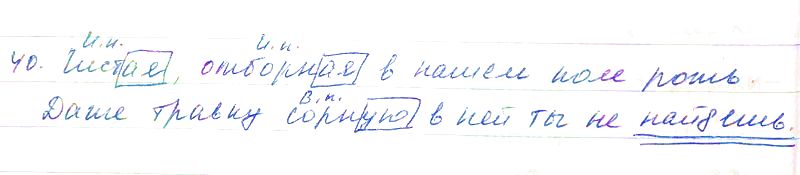 И.п. И.п.
40. Чистая, отборная в нашем поле рожь.
В.п.
Даже травку сорную в ней ты не найдешь.